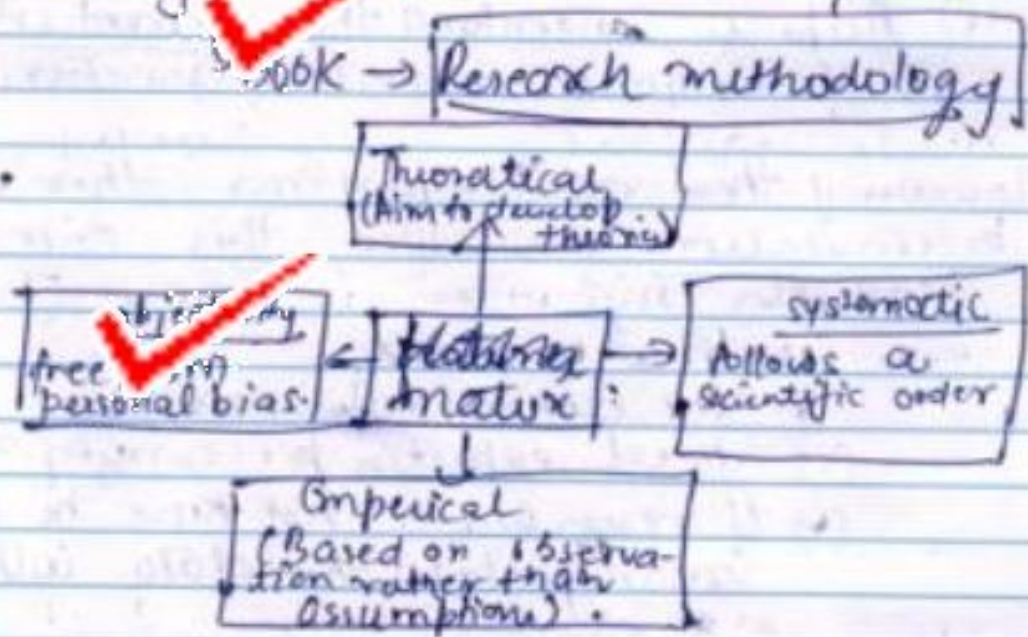 → Research methodology
Theoratical
(Aim to develop
theories)
free
personal bias.
nature
systematic
follows a
scientific order
Emperical
(Based on observa-
tion rather than
assumptions).